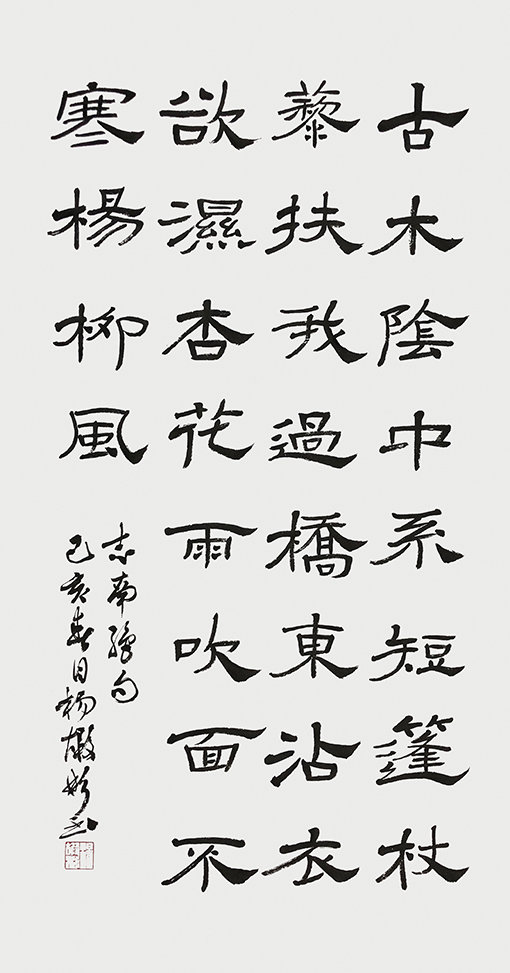 古木陰中系短篷杖
藜扶我過橋東沾衣
欲濕杏花雨吹面不
寒楊柳風
志南絕句
己亥春日楊書